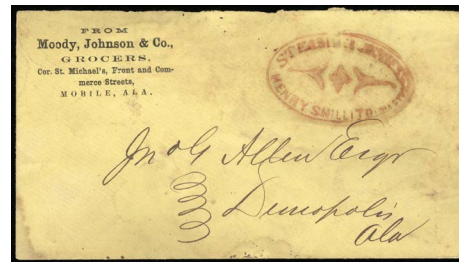 FROM
Moody, Johnson & Co.,
GROCERS,
Cor. St. Michael's, Front and Com-
merce Streets,
MOBILE, ALA.
STEAMER
HENRY SMILLITO
Jno G Allen Esqr
Demopolis
Ala